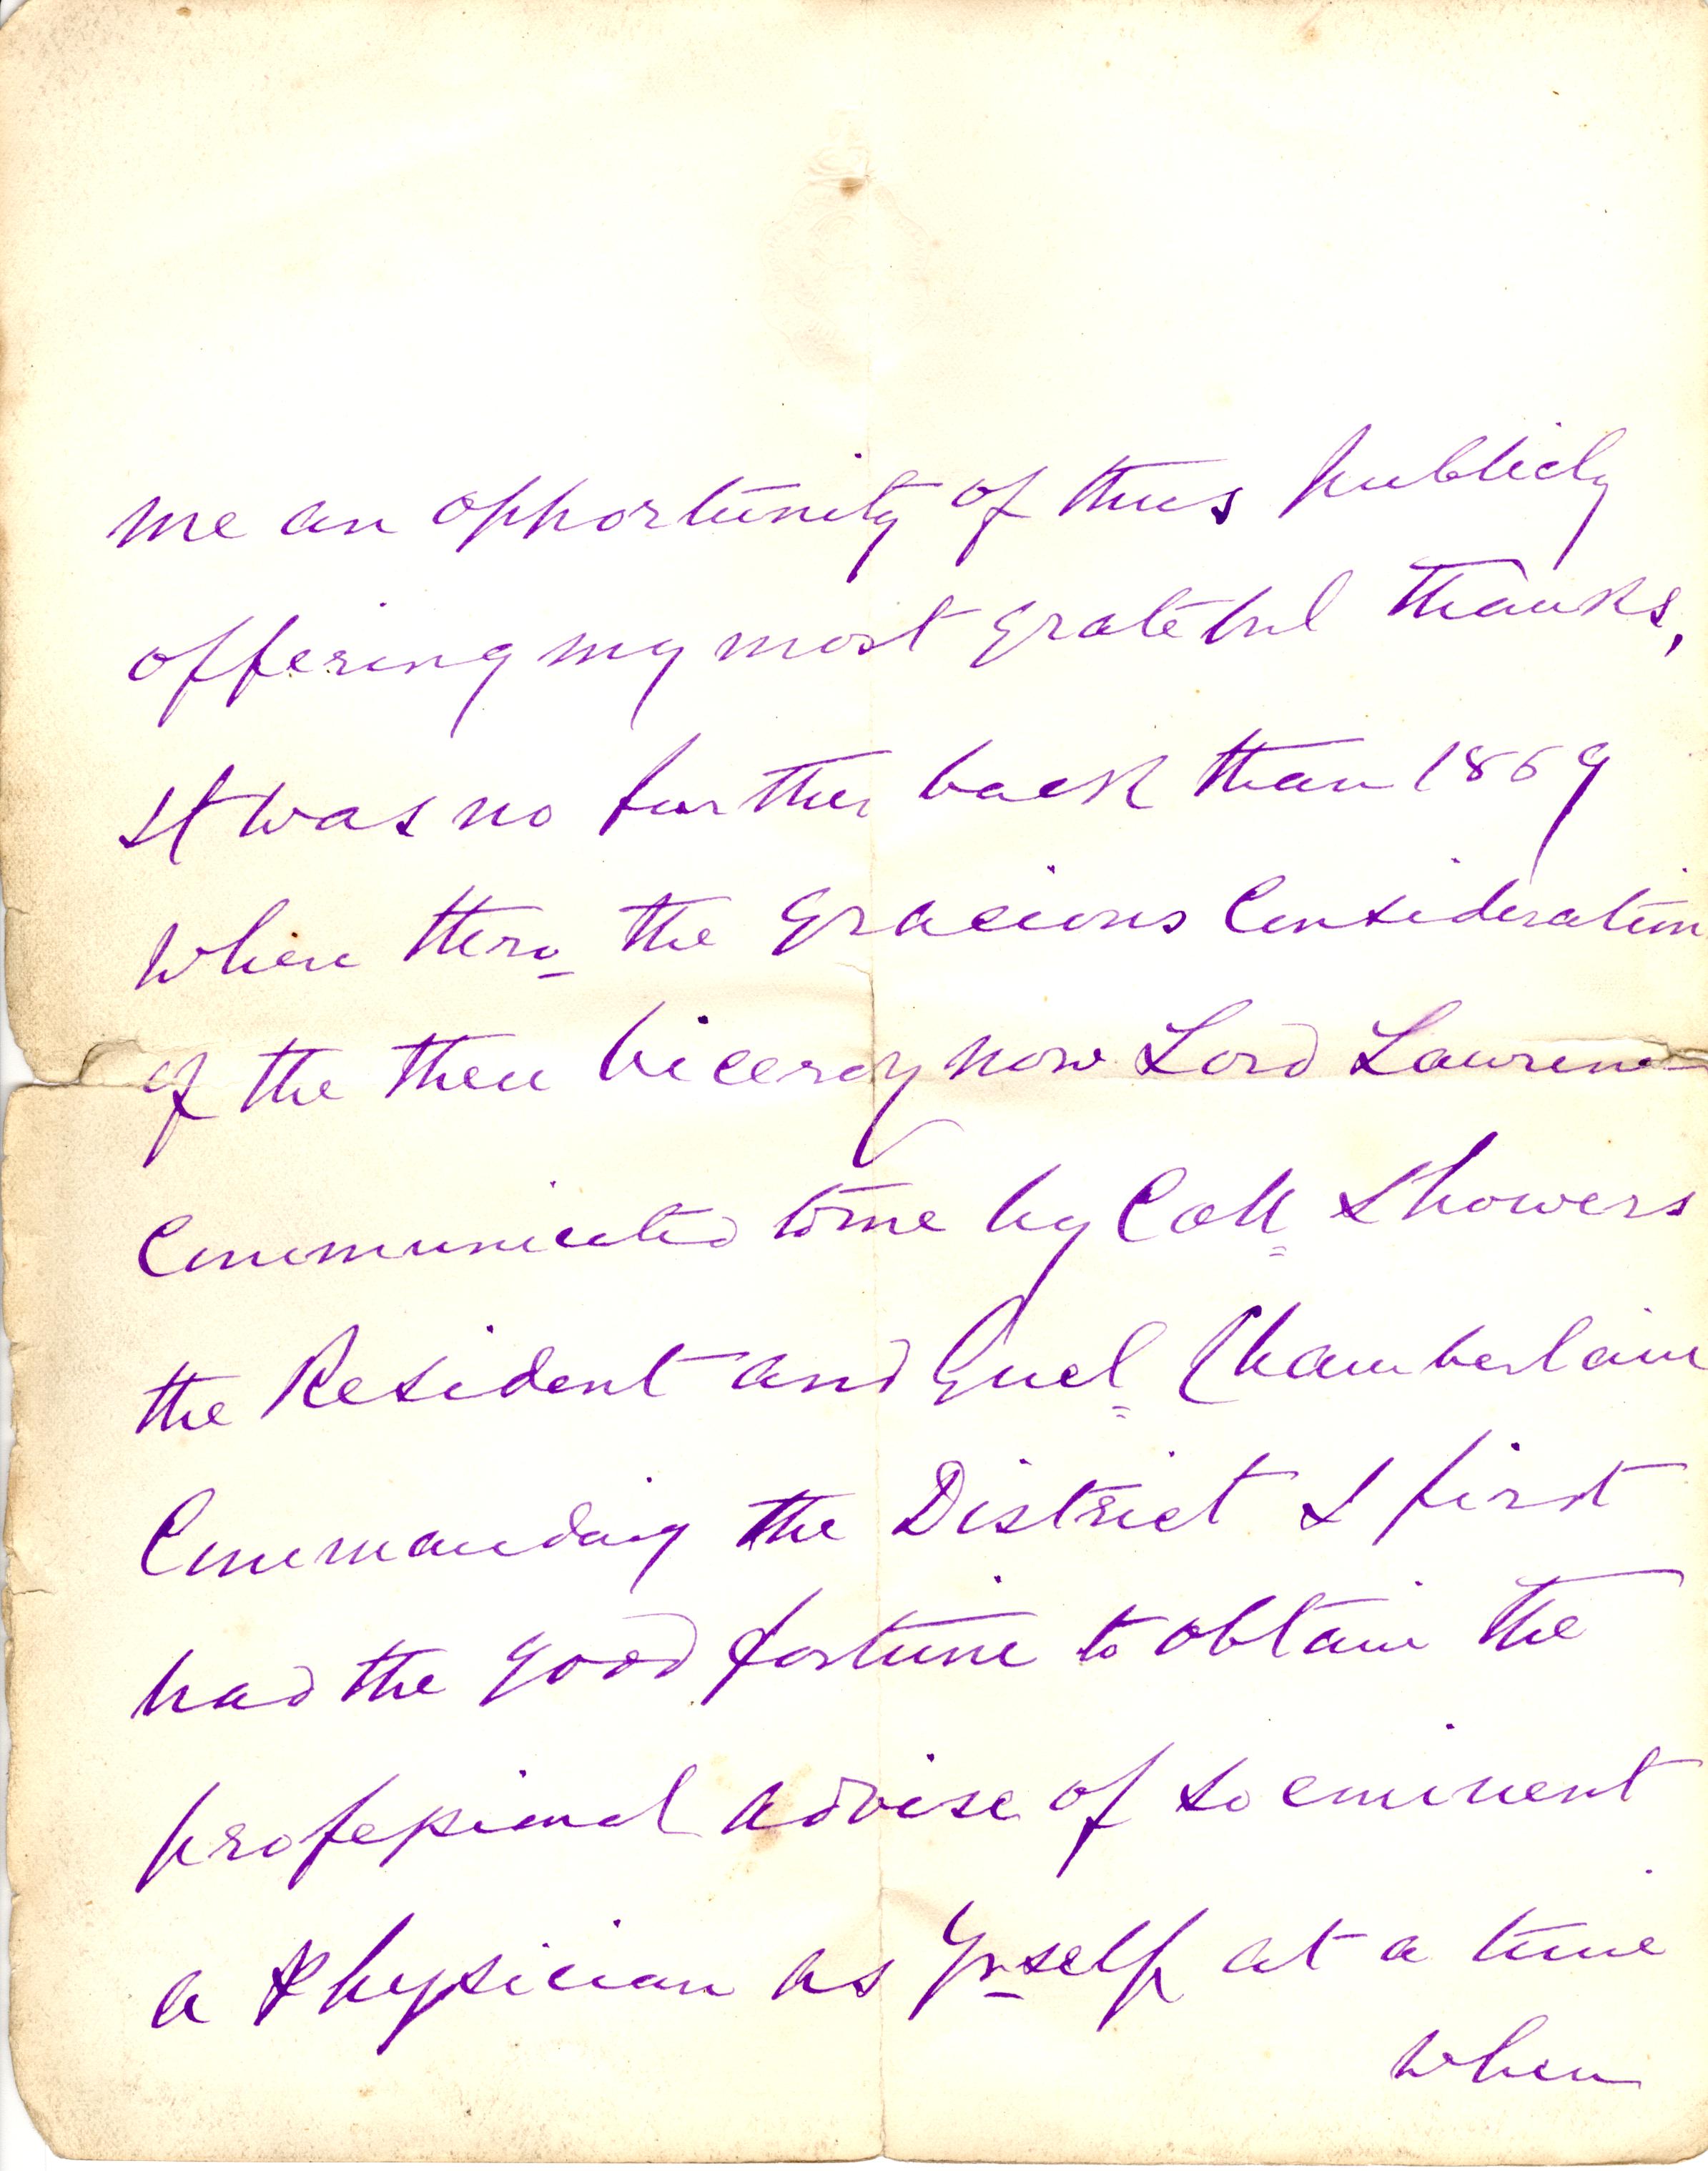 me an opportunity of thus publicly
offering my most grateful thanks,
It was no further back than 1869
when thro the gracious Consideration
of the then Viceroy now Lord Lawrence
Communicated to me by Coll Showers
the Resident and Genel Chamberlain
Commanding the District I first
had the good fortune to obtain the
professional advise of so eminent
a Physician as Yrself at a time
when